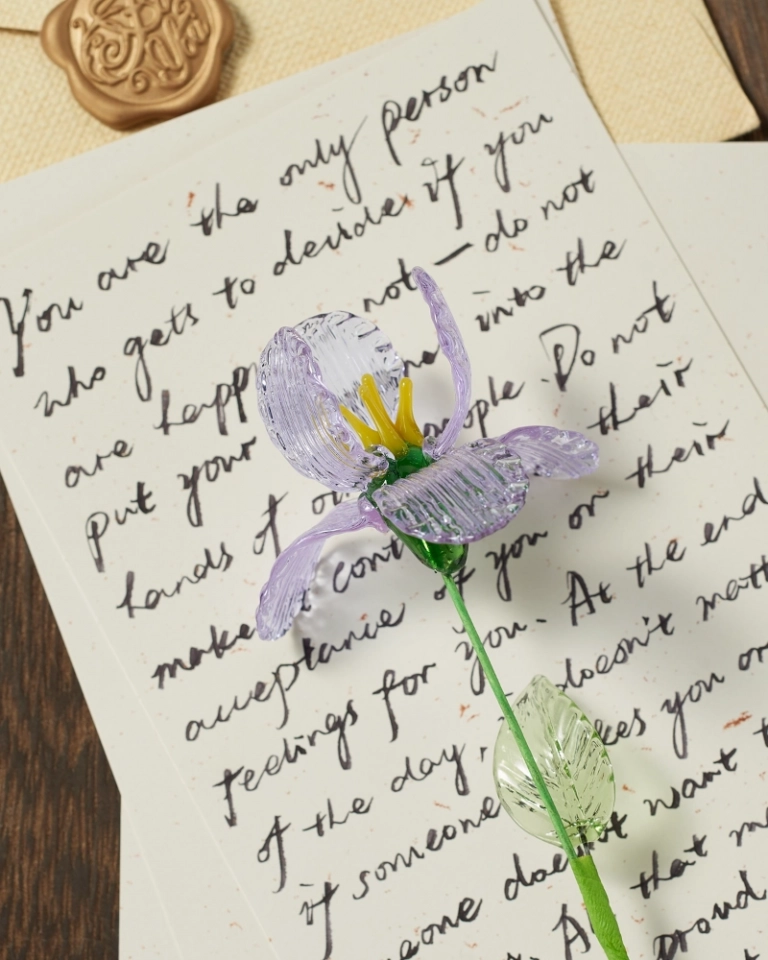 You are the only person
who gets to decide if you
are happ not — do not
put your into the
hands of people. Do not
make cont their
acceptance of you or their
feelings for you. At the end
of the day, doesn't matt
if someone kes you or
eone doesn't want
that
proud